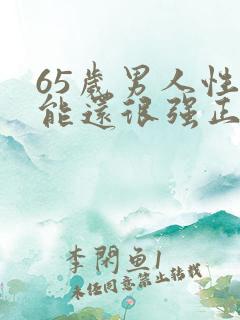 65歲男人性
能還很强正
李閑鱼1
未任同意禁止转载